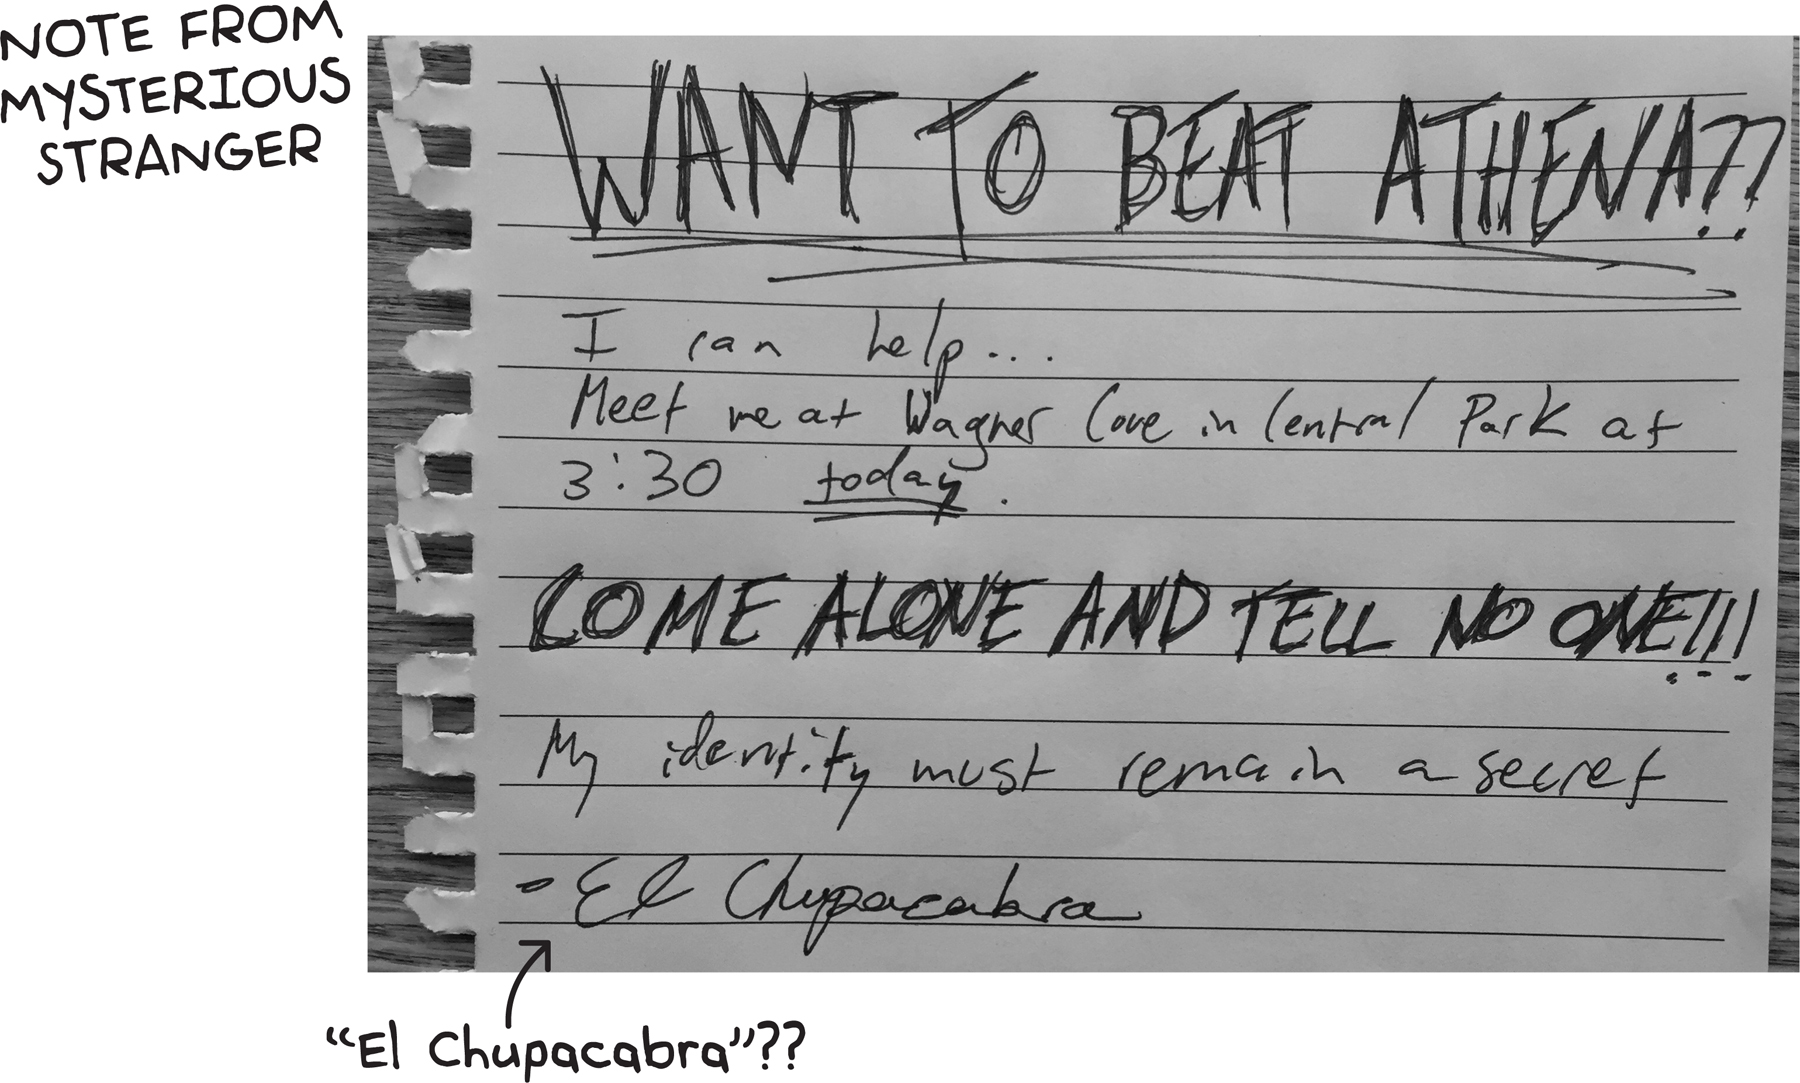 NOTE FROM
MYSTERIOUS
STRANGER
WANT TO BEAT ATHENA??
I can help...
Meet me at Wagner Cove in Central Park at
3:30 today.
COME ALONE AND TELL NO ONE!!!
My identity must remain a secret
- El Chupacabra
“El Chupacabra”??